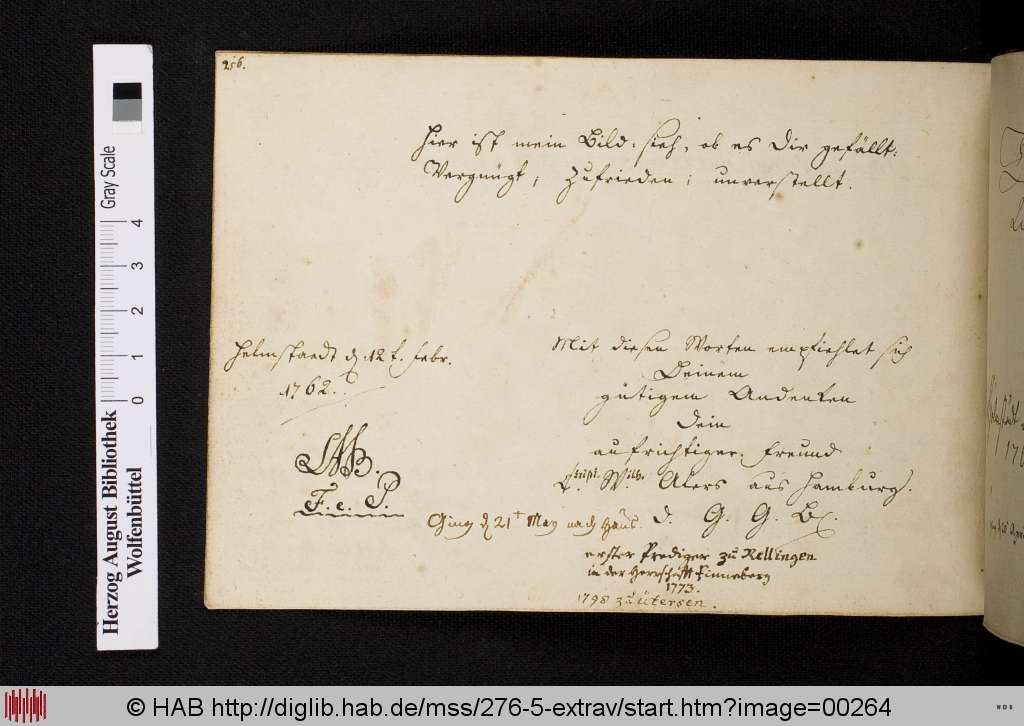 256.
Hier ist mein Bild: sieh, ob es dir gefällt:
Vergnügt; zufrieden; unverstellt.
Helmstaedt d. 12 t. Febr.
1762.
F. e. P.
Mit diesen Worten empfiehlet sich
Deinem
gütigem Andenken
Dein
aufrichtiger Freund
Wilh. Alers aus Hamburg.
d. G. G. B.
Ging d 21t May nach Haus.
erster Prediger zu Rellingen
in der Herrschafft Pinneberg
1773.
1798 zu ütersen.
Herzog August Bibliothek
Wolfenbüttel
Gray Scale
0 1 2 3 4
© HAB http://diglib.hab.de/mss/276-5-extrav/start.htm?image=00264